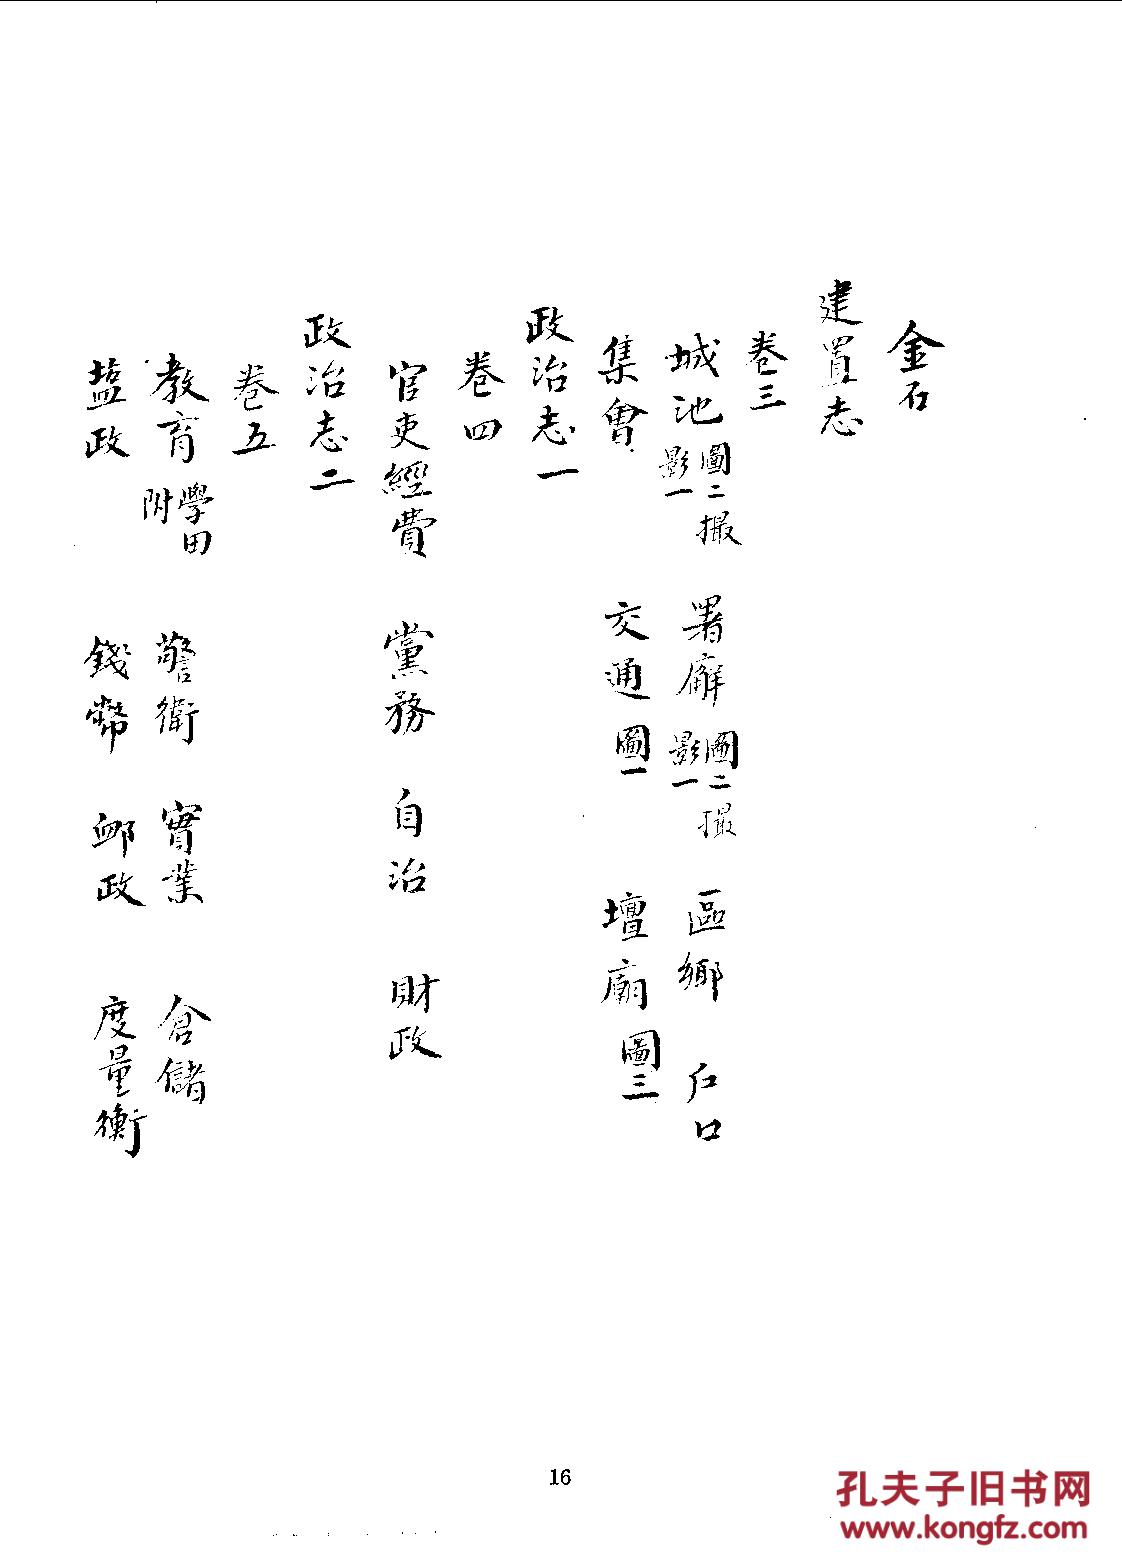 金石
建置志
卷三
城池 圖二撮影一 署廨 圖二撮影一 區鄉 戶口
集會 交通 圖一 壇廟 圖三
政治志一
卷四
官吏經費 黨務 自治 財政
政治志二
卷五
教育 學田附 警衛 實業 倉儲
鹽政 錢幣 郵政 度量衡
16
孔夫子旧书网
www.kongfz.com